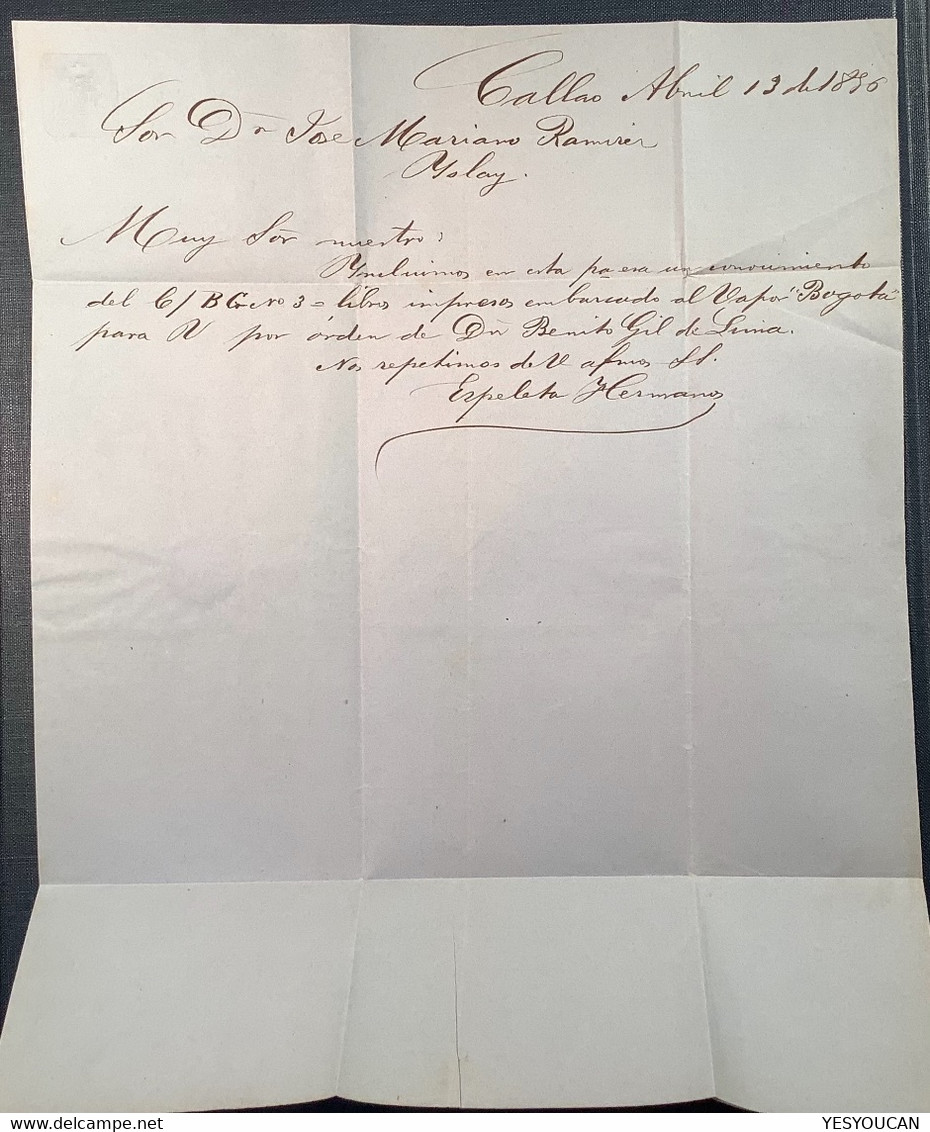 Callao Abril 13 de 1856
Sor Dn José Mariano Ramirez
Yslay.
Muy Sor nuestro:
Yncluimos en esta pa esa un conocimiento
del C/ B G no 3 = libros impresos embarcado al Vapor "Bogotá"
para V por órden de Dn Benito Gil de Lima.
Nos repetimos de V afmos SS.
Espeleta Hermanos
YESYOUCAN